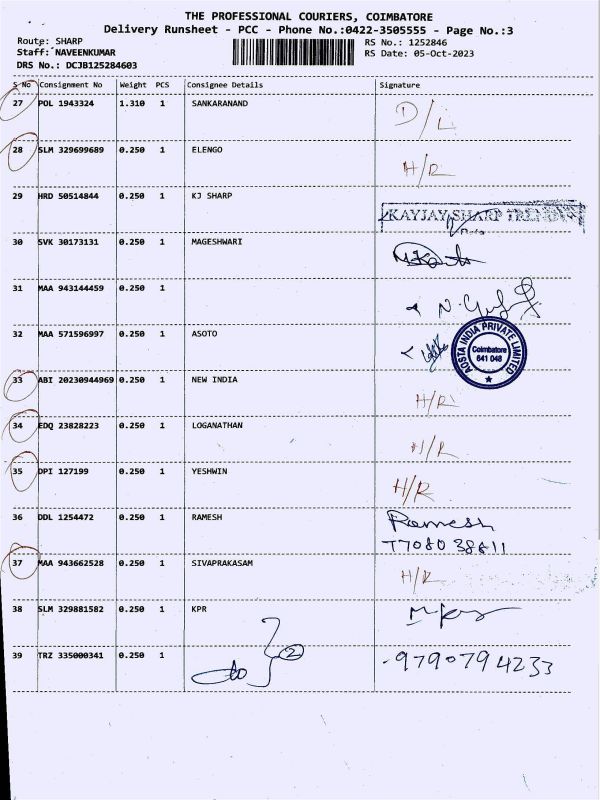 THE PROFESSIONAL COURIERS, COIMBATORE
Delivery Runsheet - PCC - Phone No.:0422-3505555 - Page No.:3
Route: SHARP RS No.: 1252846
Staff: NAVEENKUMAR RS Date: 05-Oct-2023
DRS No.: DCJB125284603
S No Consignment No Weight PCS Consignee Details Signature
27 POL 1943324 1.310 1 SANKARANAND D/L
28 SLM 329699689 0.250 1 ELENGO H/R
29 HRD 50514844 0.250 1 KJ SHARP KAYJAY SHARP TRENDYS
30 SVK 30173131 0.250 1 MAGESHWARI
31 MAA 943144459 0.250 1
32 MAA 571596997 0.250 1 ASOTO AOSTA INDIA PRIVATE LIMITED Coimbatore 641 048
33 ABI 20230944969 0.250 1 NEW INDIA H/R
34 EDQ 23828223 0.250 1 LOGANATHAN H/R
35 DPI 127199 0.250 1 YESHWIN H/R
36 DDL 1254472 0.250 1 RAMESH Ramesh
7708038811
37 MAA 943662528 0.250 1 SIVAPRAKASAM H/R
38 SLM 329881582 0.250 1 KPR
39 TRZ 335000341 0.250 1 2 9790794233